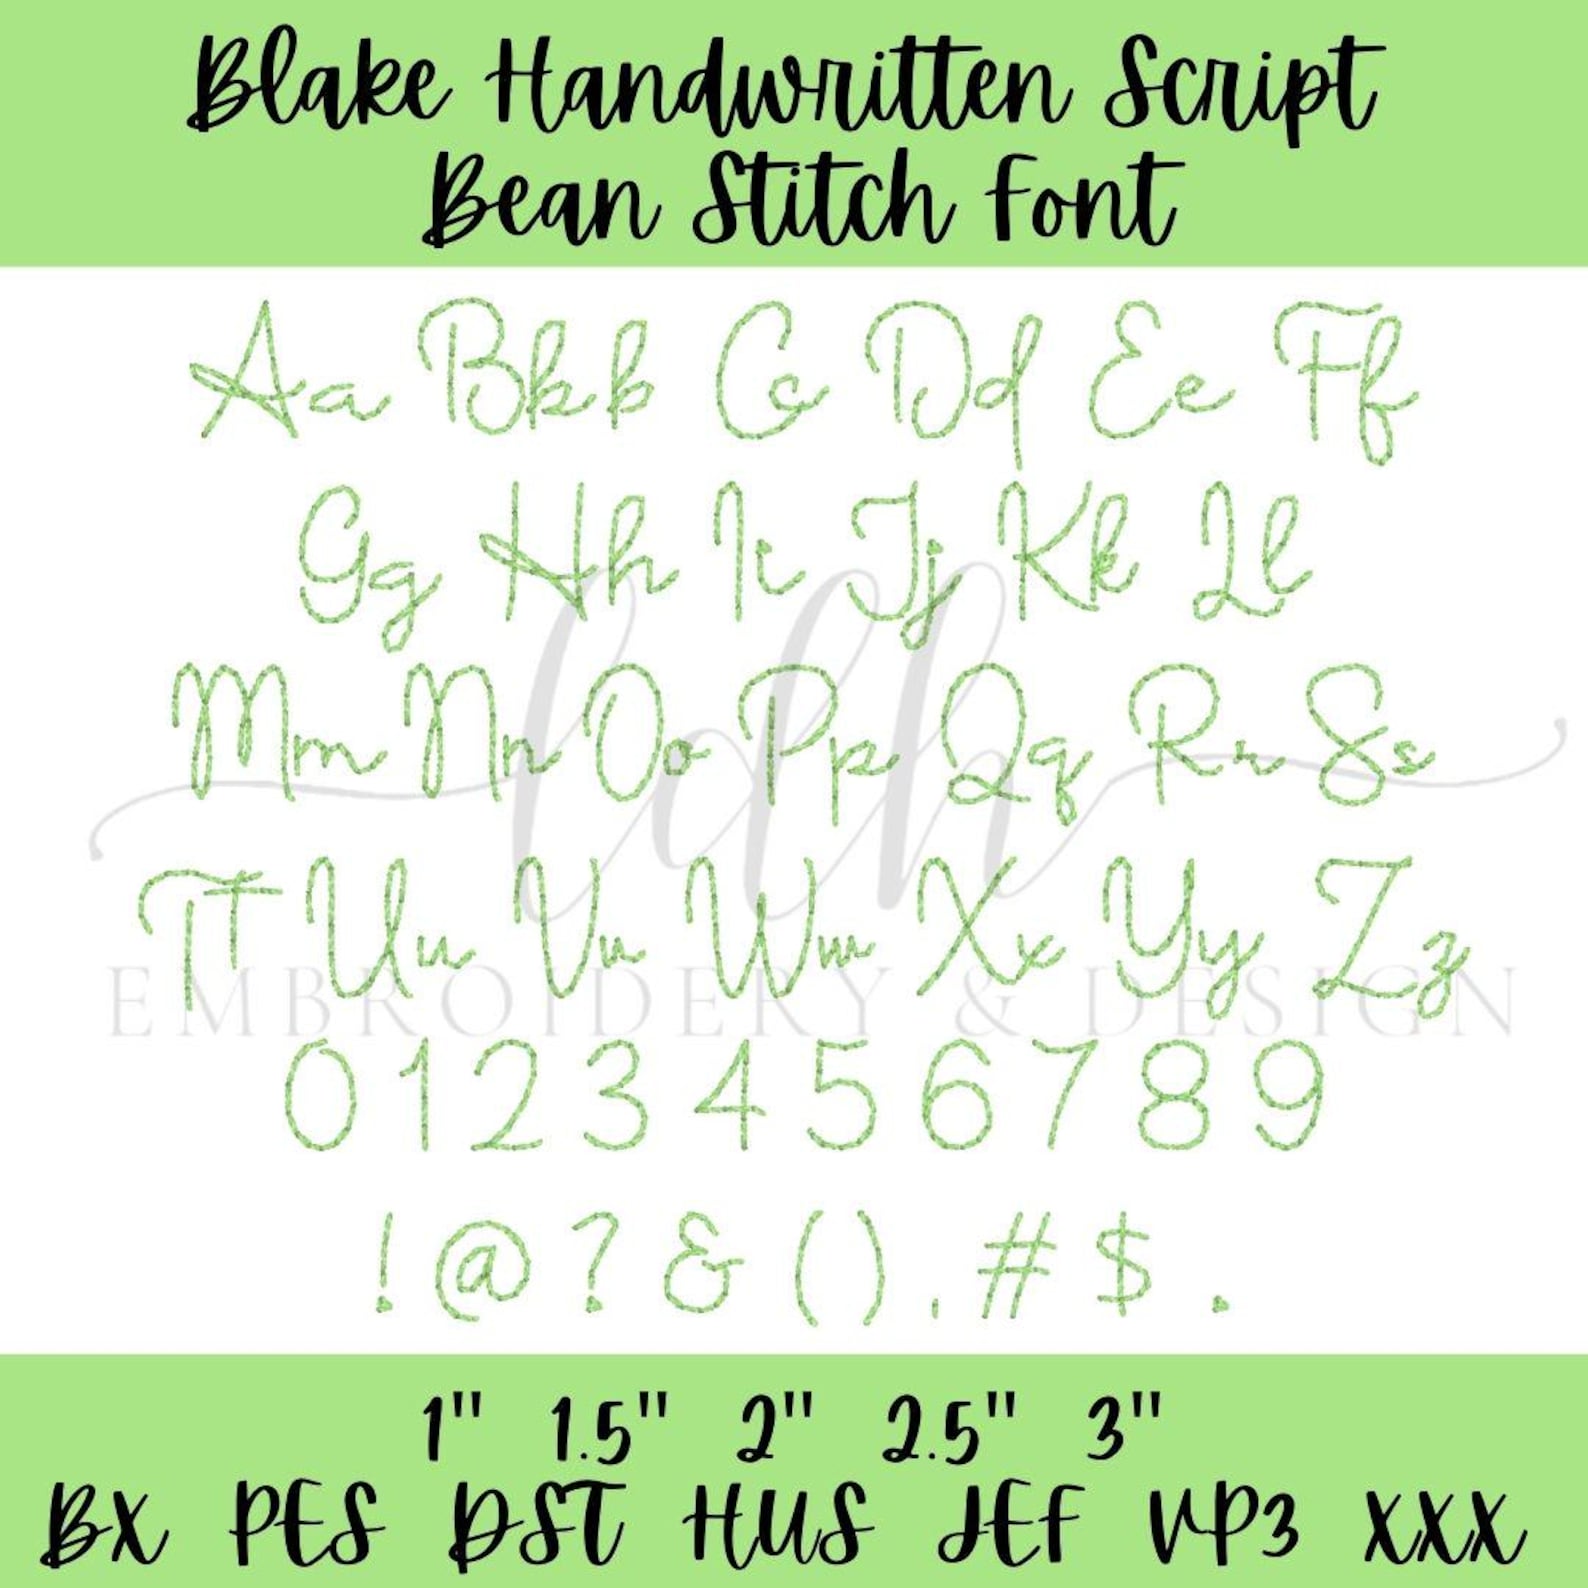 Blake Handwritten Script
Bean Stitch Font
Aa Bbb Cc Dd Ee Ff
Gg Hh Ii Jj Kk Ll
Mm Nn Oo Pp Qq Rr Ss
Tt Uu Vv Ww Xx Yy Zz
ldh
EMBROIDERY & DESIGN
0 1 2 3 4 5 6 7 8 9
! @ ? & ( ) , # $ .
1" 1.5" 2" 2.5" 3"
BX PES DST HUS JEF VP3 XXX